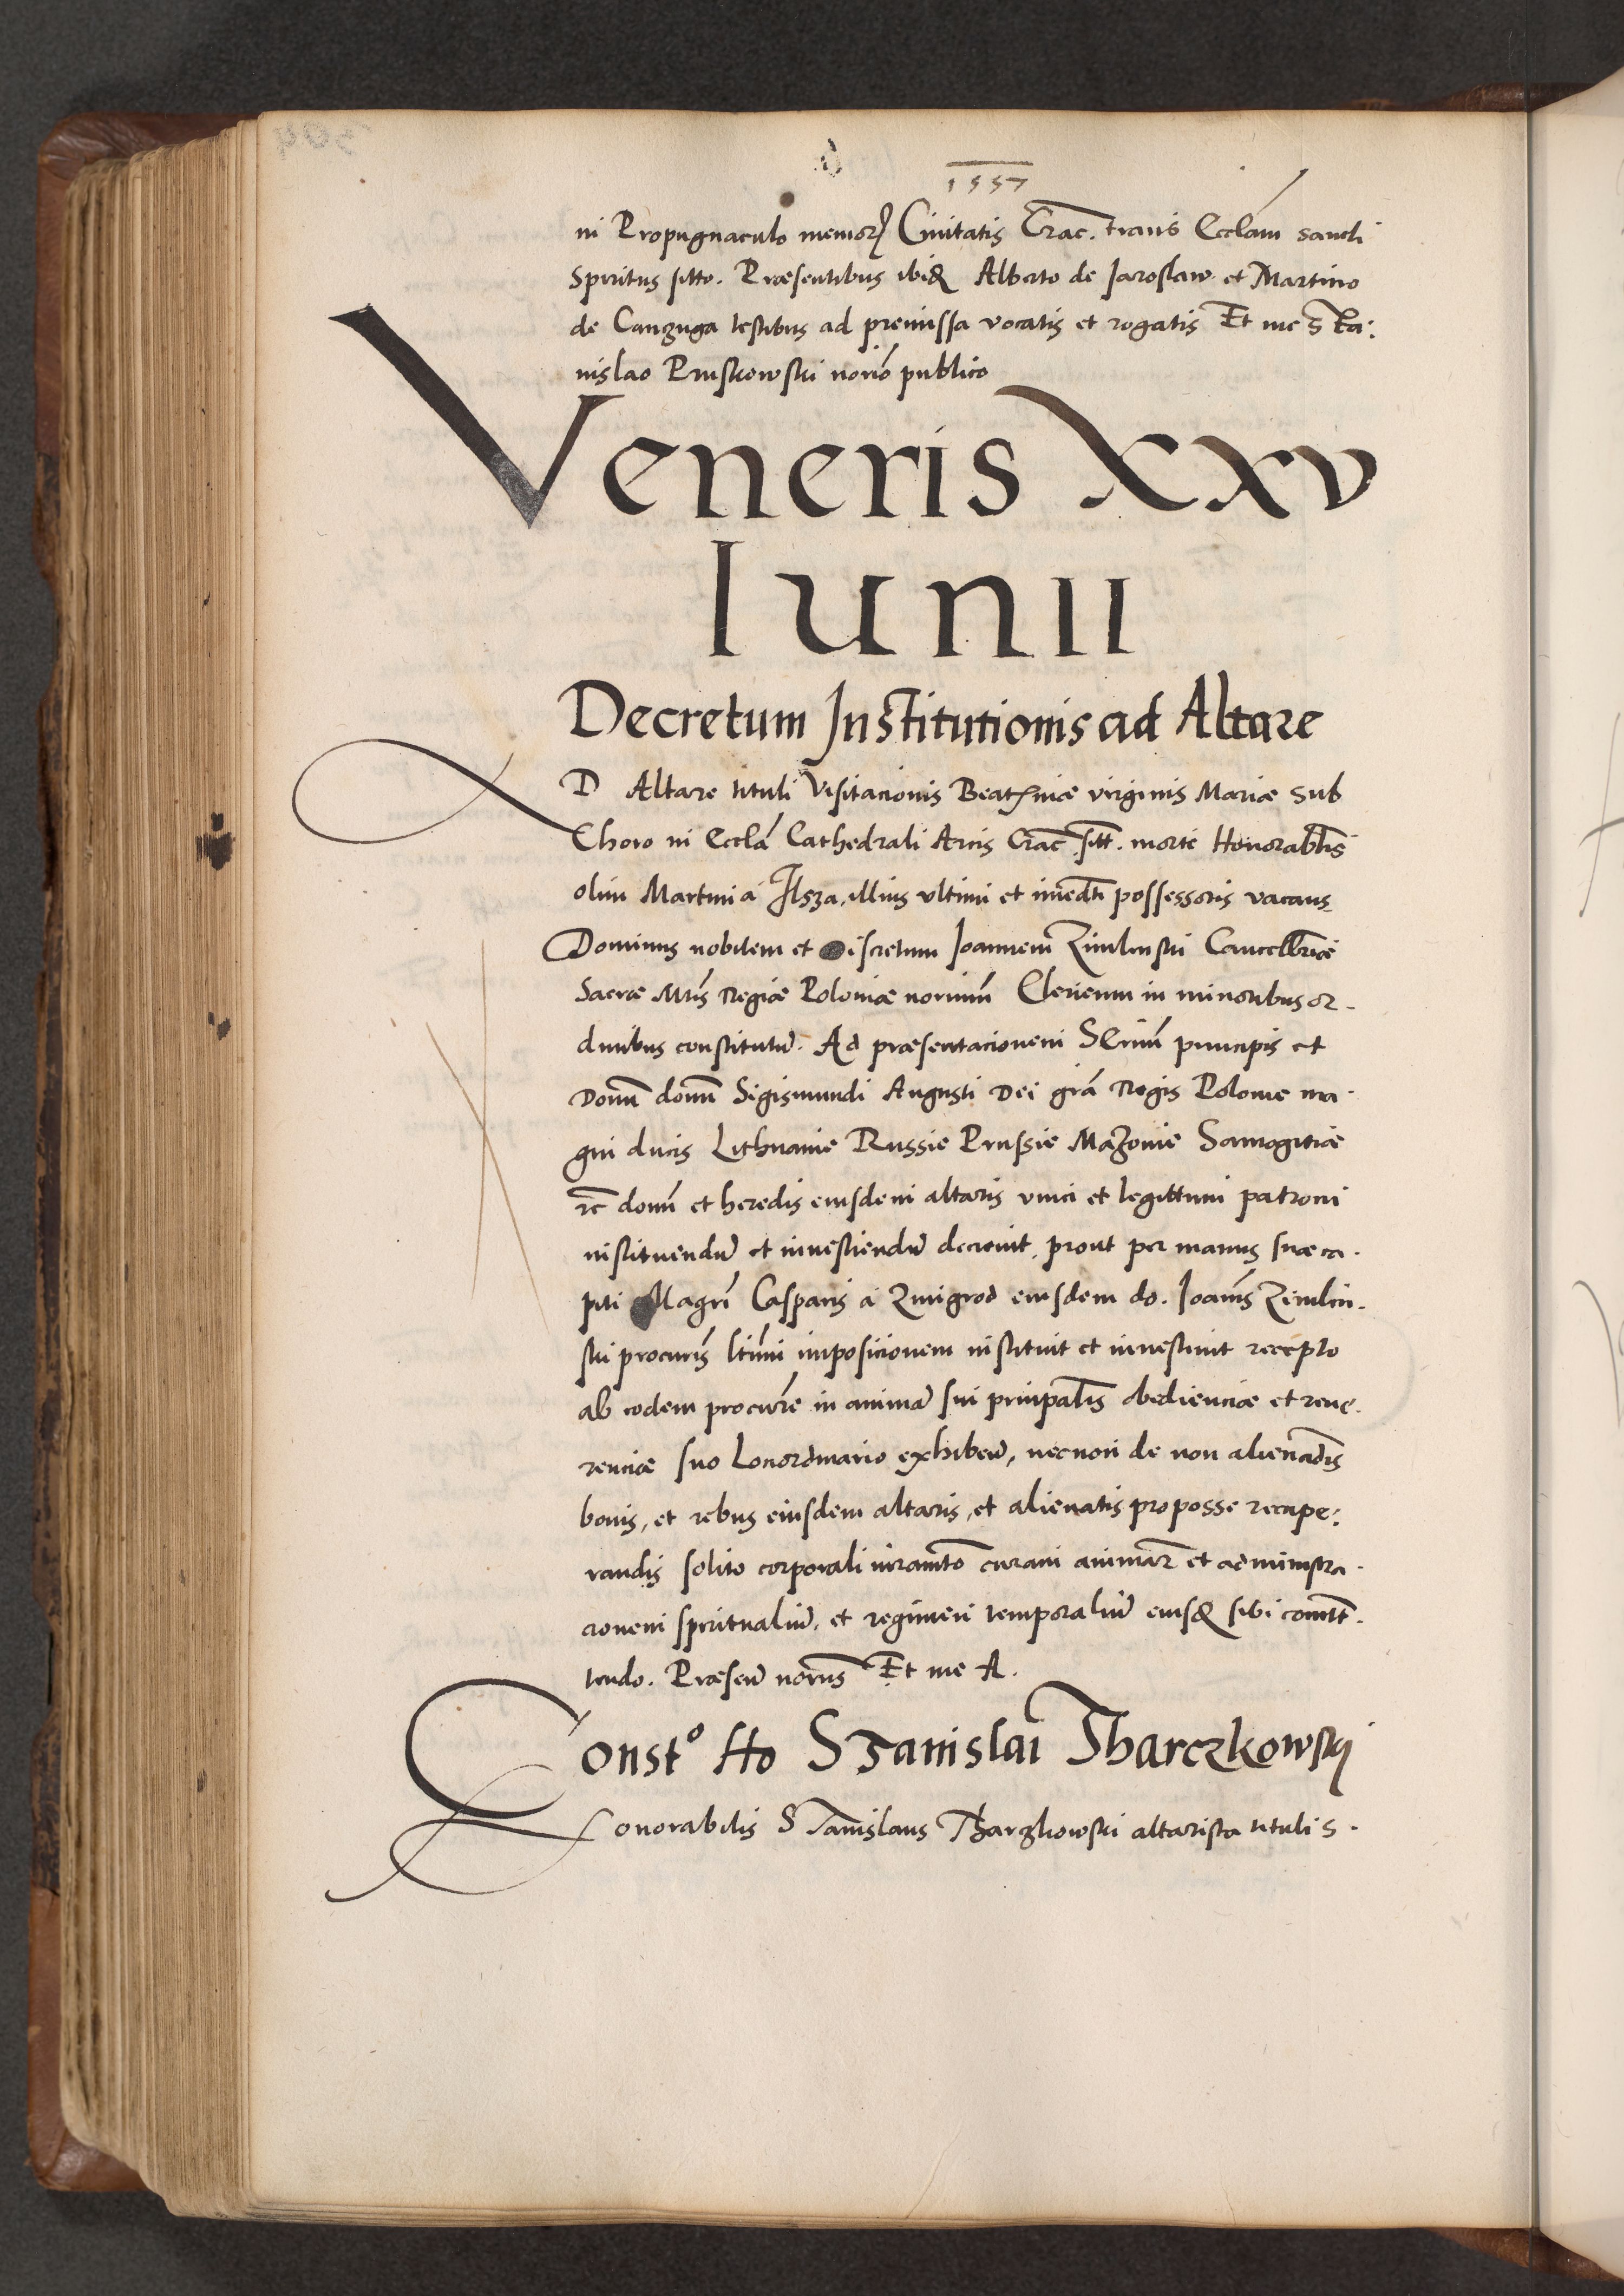 1557
in Propugnaculo memor Civitatis Crac. trans Eccłam sancti
Spiritus sitto. Præsentibus ibidē Alberto de Iaroslaw et Martino
de Canzuga testibus ad premissa vocatis et rogatis Et me Sta:
nislao Pruskowski norio publico
Veneris XXV
Iunii
Decretum Institutionis ad Altare
D Altare tituli Visitacionis Beatissimæ virginis Mariæ sub
Choro in Eccła Cathedrali Arcis Crac. sitt. morte Honorablis
olim Martini a Ilsza, illius ultimi et imedti possessoris vacans
Dominus nobilem et discretum Ioannem Zimlinski Cancellriæ
Sacræ Mtis Regiæ Poloniæ norium Clericum in minoribus or-
dinibus constitutū. Ad præsentacionem Serimi principis et
Domi domi Sigismundi Augusti Dei gra Regis Polonie ma-
gni ducis Lithuanie Russie Prussie Mazouie Samogitiæ
rc domi et heredis eiusdem altaris unici et legittimi patroni
instituendū et investiendū decrevit, prout per manus suæ ca-
piti Magri Casparis a Zmigrod eiusdem do. Ioanis Zimlin-
ski procuris ltimi imposicionem instituit et investivit recepto
ab eodem procure in animā sui prinpalis obedienciæ et reve-
renciæ suo Locordinario exhibeñ, necnon de non alienadis
bonis, et rebus eiusdem altaris, et alienatis pro posse recupe:
randis solito corporali iuramto curam animar et administra-
cionem spiritualiū, et regimen temporaliū eiusdē sibi comitt-
tendo. Præsen norus Et me A.
Constº Ho Stanislai Tharczkowsky
Honorabilis Stanislaus Tharzkowski altarista tituli S.